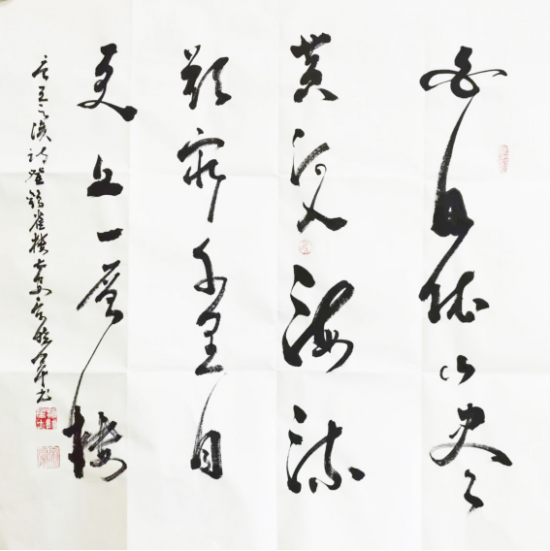 白日依山尽
黄河入海流
欲穷千里目
更上一层楼
王之涣诗登鹳雀楼